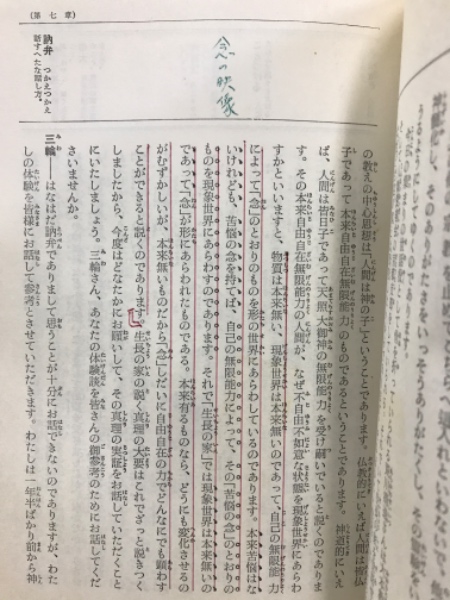 (第七章)
訥弁 つかえつかえ
話すへたな話し方。
念の映像
の教えの中心思想は「人間は神の子」ということであります。仏教的にいえば人間は皆仏
子であって本来自由自在無限能力のものであるということであります。神道的にいえ
ば、人間は皆日子であって天照大御神の無限能力を受け嗣いでいると説くのでありま
す。その本来自由自在無限能力の人間が、なぜ不自由不如意な状態を現象世界にあらわ
すかといいますと、物質は本来無い、現象世界は本来無いのであって、自己の無限能力
によって「念」のとおりのものを形の世界にあらわしているのであります。本来苦悩はな
いけれども、苦悩の念を持てば、自己の無限能力によって、その「苦悩の念」のとおりの
ものを現象世界にあらわすのであります。それで「生長の家」では現象世界は本来無いの
であって「念」が形にあらわれたものである。本来有るものなら、どうにも変化させるの
がむずかしいが、本来無いものだから「念」しだいに自由自在の力でどんなにでも顕わす
ことができると説くのであります。生長の家の説く真理の大要はこれでざっと説きつく
しましたから、今度はどなたかにお願いして、その真理の実証をお話していただくこと
にいたしましょう。三輪さん、あなたの体験談を皆さんの御参考のためにお話してくだ
さいませんか。
三輪――はなはだ訥弁でありまして思うことが十分にお話できないのでありますが、わた
しの体験を皆様にお話して参考とさせていただきます。わたしは一年半ばかり前から神